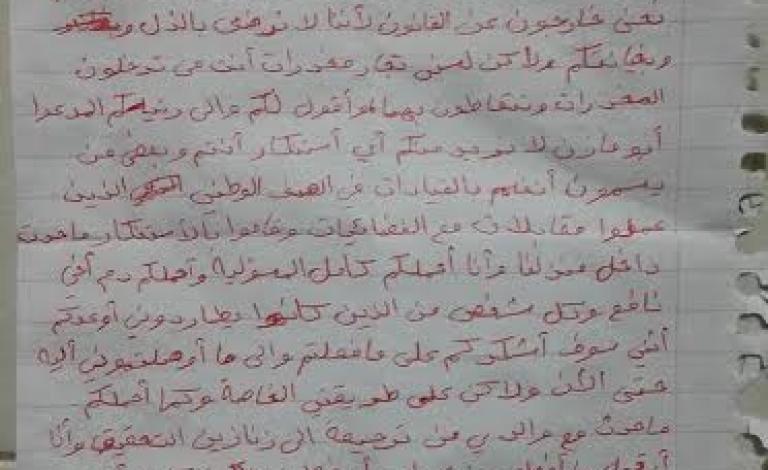 نحن خارجون عن القانون لأننا لا نرضى بالذل
وبخيانتكم ولاكن لسنى تجار مخدرات أنت من تدخلون
المخدرات وتتعاطون بهما وأقول لكم والى رئيسكم المدعوا
أبو مازن لا نريد منكم أي أستنكار أنتم وبعض من
يسمون أنفسهم بالقيادات في الصف الوطني الذين
عملوا مقابلات مع الفضائيات وقاموا بالأستنكار ماحدث
داخل منزلنا وأنا أحملكم كامل المسؤلية وأحملكم دم أخي
نافع وكل شخص من الذين كانوا يطاردوني أوعدكم
أنني سوف أشكركم على مافعلتم والى ما أوصلتموني أليه
حتى الأن ولاكن على طريقتي الخاصة وكما أحملكم
ماحدث مع والدي من ترجيعه الى زنازين التحقيق وأنا